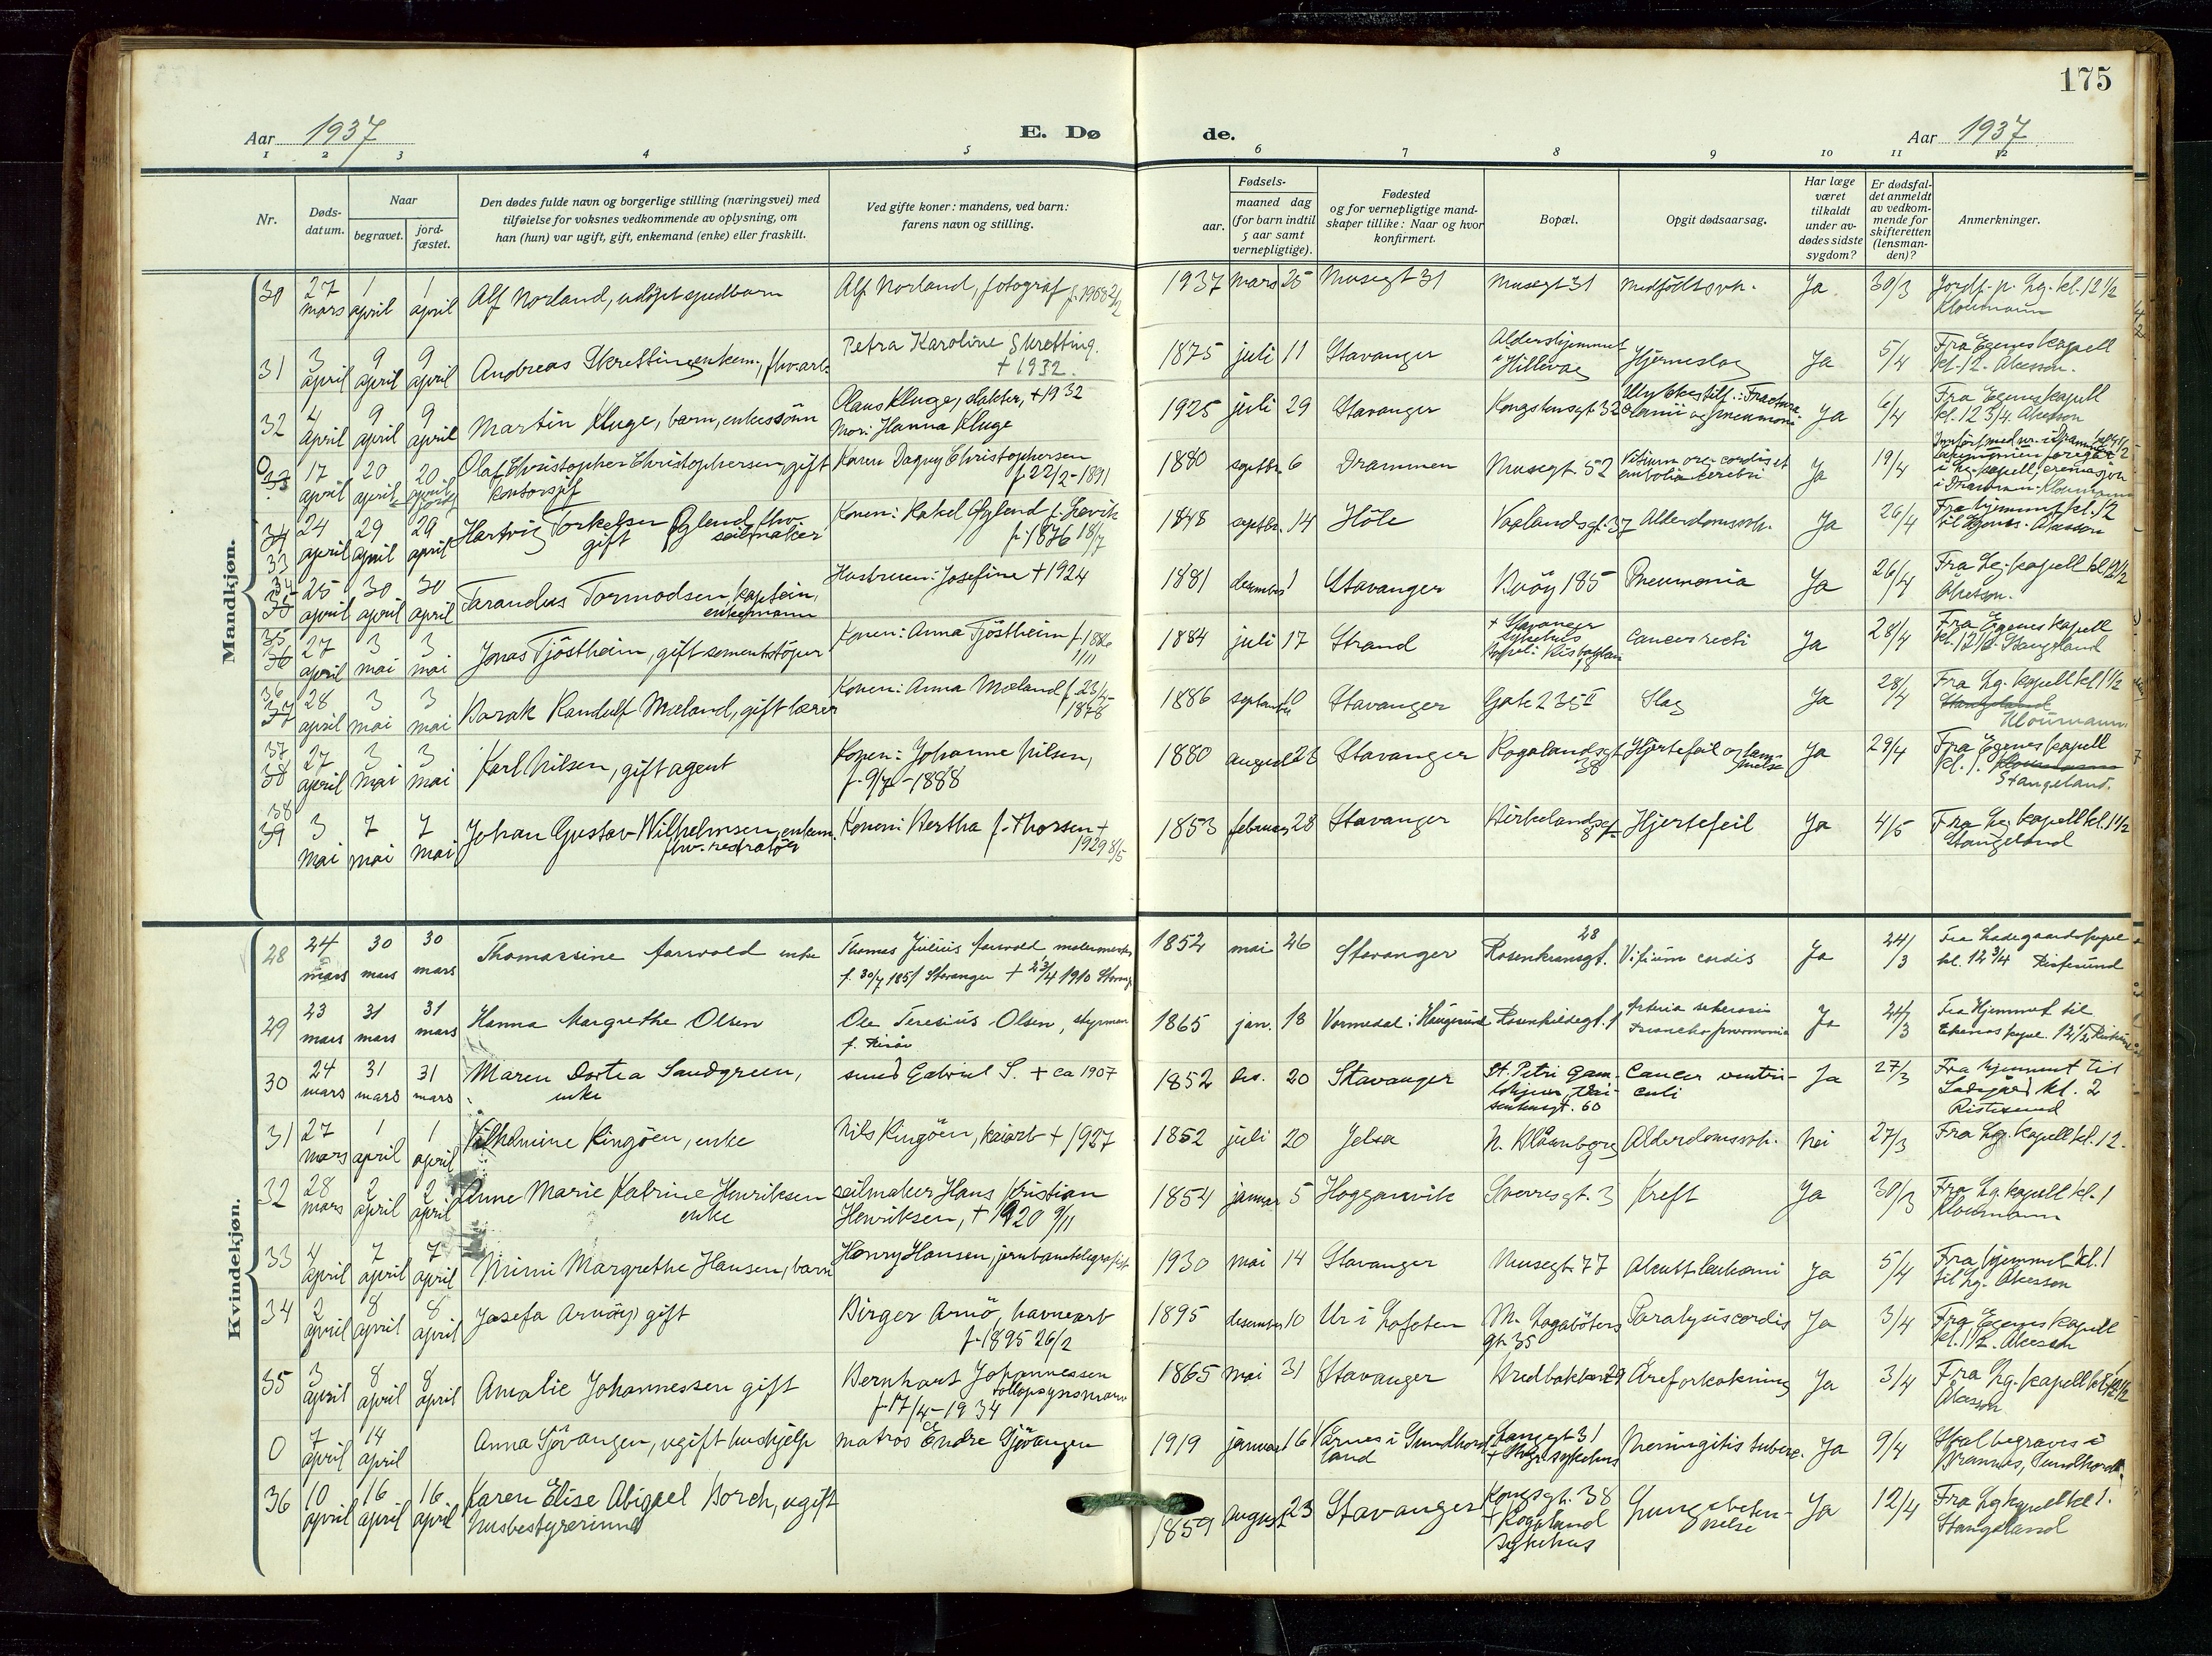 175
Aar 1937 E. Dø de. Aar 1937
1 2 3 4 5 6 7 8 9 10 11 12
Nr.
Døds-datum.
Naar
begravet.
jord-fæstet.
Den dødes fulde navn og borgerlige stilling (næringsvei) med
tilføielse for voksnes vedkommende av oplysning, om
han (hun) var ugift, gift, enkemand (enke) eller fraskilt.
Ved gifte koner: mandens, ved barn:
farens navn og stilling.
Fødsels-
aar. maaned dag
(for barn indtil
5 aar samt
vernepligtige).
Fødested
og for vernepligtige mand-
skaper tillike: Naar og hvor
konfirmert.
Bopæl.
Opgit dødsaarsag.
Har læge
været
tilkaldt
under av-
dødes sidste
sygdom?
Er dødsfal-
det anmeldt
av vedkom-
mende for
skifteretten
(lensman-
den)?
Anmerkninger.
Mandkjøn.
30 27 mars 1 april 1 april Alf Norland, udøpt spedbarn Alf Norland, fotograf f. 1908 2/2 1937 mars 25 Musegt 31 Musegt 31 medfödt svk. Ja 30/3 Jordf. p. Lg. kl. 12 1/2 Kloumann
31 3 april 9 april 9 april Andreas Skretting enkem., fhv. arb. Petra Karoline Skretting. + 1932. 1875 juli 11 Stavanger Aldershjemmet i Hillevåg Hjerneslag Ja 5/4 Fra Egenes kapell kl. 12. Akesson.
32 4 april 9 april 9 april Martin Kluge, barn, enkessönn Olaus Kluge, slakter, + 1932 Mor: Hanna Kluge 1925 juli 29 Stavanger Kongstensgt. 32 Ulykkestilf.: Fractura cranii og pneumoni Ja 6/4 Fra Egenes kapell kl. 12 3/4 Akesson
0 33 17 april 20 april 20 april Olaf Christopher Christophersen, gift kontorsjef Karen Dagny Christophersen f. 22/2-1891 1880 septbr. 6 Drammen Musegt. 52 Vitium org. cordis et embolia cerebri Ja 19/4 i Lg. kapell, cremasjon i Drammen. Kloumann
34 33 24 april 29 april 29 april Hartvig Torkelsen Øglend, fhv. seilmaker gift Konen: Rakel Øglend f. Levik f. 1876 18/7 1848 septbr. 14 Höle Vaalandsgt. 37 Alderdomssvk. Ja 26/4 Fra hjemmet kl. 12 til Egenes. Akesson
34 35 25 april 30 april 30 april Tarandus Tormodsen, kaptein, enkemann Hustruen: Josefine + 1924 1881 desember 1 Stavanger Buöy 185 Pneumonia Ja 26/4 Fra Lg. kapell kl. 12 1/2 Akesson.
35 36 27 april 3 mai 3 mai Jonas Tjöstheim, gift sementstöper Konen: Anna Tjöstheim f. 1886 1/11 1884 juli 17 Strand + Stavanger sykehus Cancer recti Ja 28/4 Fra Egenes kapell kl. 12 1/2. Stangeland
36 37 28 april 3 mai 3 mai Barak Randulf Mæland, gift lærer Konen: Anna Mæland f. 23/4-1878 1886 september 10 Stavanger Gate 235 II Slag Ja 28/4 Fra Lg. kapell kl. 1 1/2 Stangeland Kloumann
37 38 27 april 3 mai 3 mai Karl Nilsen, gift agent Konen: Johanne Nilsen, f. 9/7-1888 1880 august 28 Stavanger Rogalandsgt 38 Hjertefeil og lammelse Ja 29/4 Fra Egenes kapell kl. 1. Kloumann Stangeland.
38 39 3 mai 7 mai 7 mai Johan Gustav Wilhelmsen, enkem. fhv. restratör Konen: Bertha f. Thorsen + 1929 8/5 1853 februar 28 Stavanger Birkelandsgt 8 Hjertefeil Ja 4/5 Fra Lg. kapell kl. 1 1/2 Stangeland
Kvindekjøn.
28 24 mars 30 mars 30 mars Thomassine Aarvold enke Thomas Julius Aarvold malermester f. 30/7 1851 Stavanger + 23/4 1910 Stavng 1852 mai 26 Stavanger Rosenkransgt. 28 Vitium cordis Ja 24/3 Fra Ladegaardskapel kl. 12 3/4 Ristesund
29 23 mars 31 mars 31 mars Hanna Margrethe Olsen Ole Teresius Olsen, styrman f. Risör 1865 jan. 18 Vormedal i Haugesund Rosenkildegt. 1 Arteria sclerosis Broncho pneumonia Ja 24/3 Fra Hjemmet til Ekenes kapel. 12 1/2 Ristesund
30 24 mars 31 mars 31 mars Maren Dortea Sandgreen, enke smed Gabriel S. + ca 1907 1852 des. 20 Stavanger St. Petri Gamlehjem, 60 Cancer ventriculi Ja 27/3 Fra hjemmet til Ladegård kl. 2 Ristesund
31 27 mars 1 april 1 april Vilhelmine Ringöen, enke Nils Ringöen, kaiarb + 1927 1852 juli 20 Jelsa N. Blåsenborg 9 Alderdomssvk. Nei 27/3 Fra Lg. kapell kl. 12.
32 28 mars 2 april 2 april Anne Marie Katrine Henriksen enke seilmaker Hans Kristian Henriksen, + 1920 9/11 1854 januar 5 Hogganvik Sverresgt. 3 Kreft Ja 30/3 Fra Lg. kapell kl. 1 Kloumann
33 4 april 7 april 7 april Mimi Margrethe Hansen, barn Henry Hansen, jernbanetelegrafist 1930 mai 14 Stavanger Musegt. 77 Akutt leukemi Ja 5/4 Fra hjemmet kl. 1 til Lg. Akesson
34 2 april 8 april 8 april Josefa Arnö, gift Birger Arnö, havnearb f. 1895 26/2 1895 desember 10 Ur i Lofoten M. Lagaböters gt. 35 Paralysis cordis Ja 3/4 Fra Egenes kapell kl. 1 1/2. Akesson
35 3 april 8 april 8 april Amalie Johannessen gift Bernhart Johannessen tollopsynsmann f. 17/4-1934 1865 mai 31 Stavanger Bredbakken 29 Åreforkalkning Ja 3/4 Fra Lg. kapell kl. 12 1/2 Akesson
0 7 april 14 april Anna Gjövangen, ugift hushjelp matros Endre Gjövangen 1919 januar 16 i Sundhordland Langgt 31 + Stvgr. sykehus Meningitis tuberc. Ja 9/4 Skal begraves i Bremnes, Sundhordl.
36 10 april 16 april 16 april Karen Elise Abigael Borch, ugift husbestyrerinne 1859 august 23 Stavanger Kongsgt. 38 + Rogaland sykehus Lungebetennelse Ja 12/4 Fra Lg kapell kl 1. Stangeland